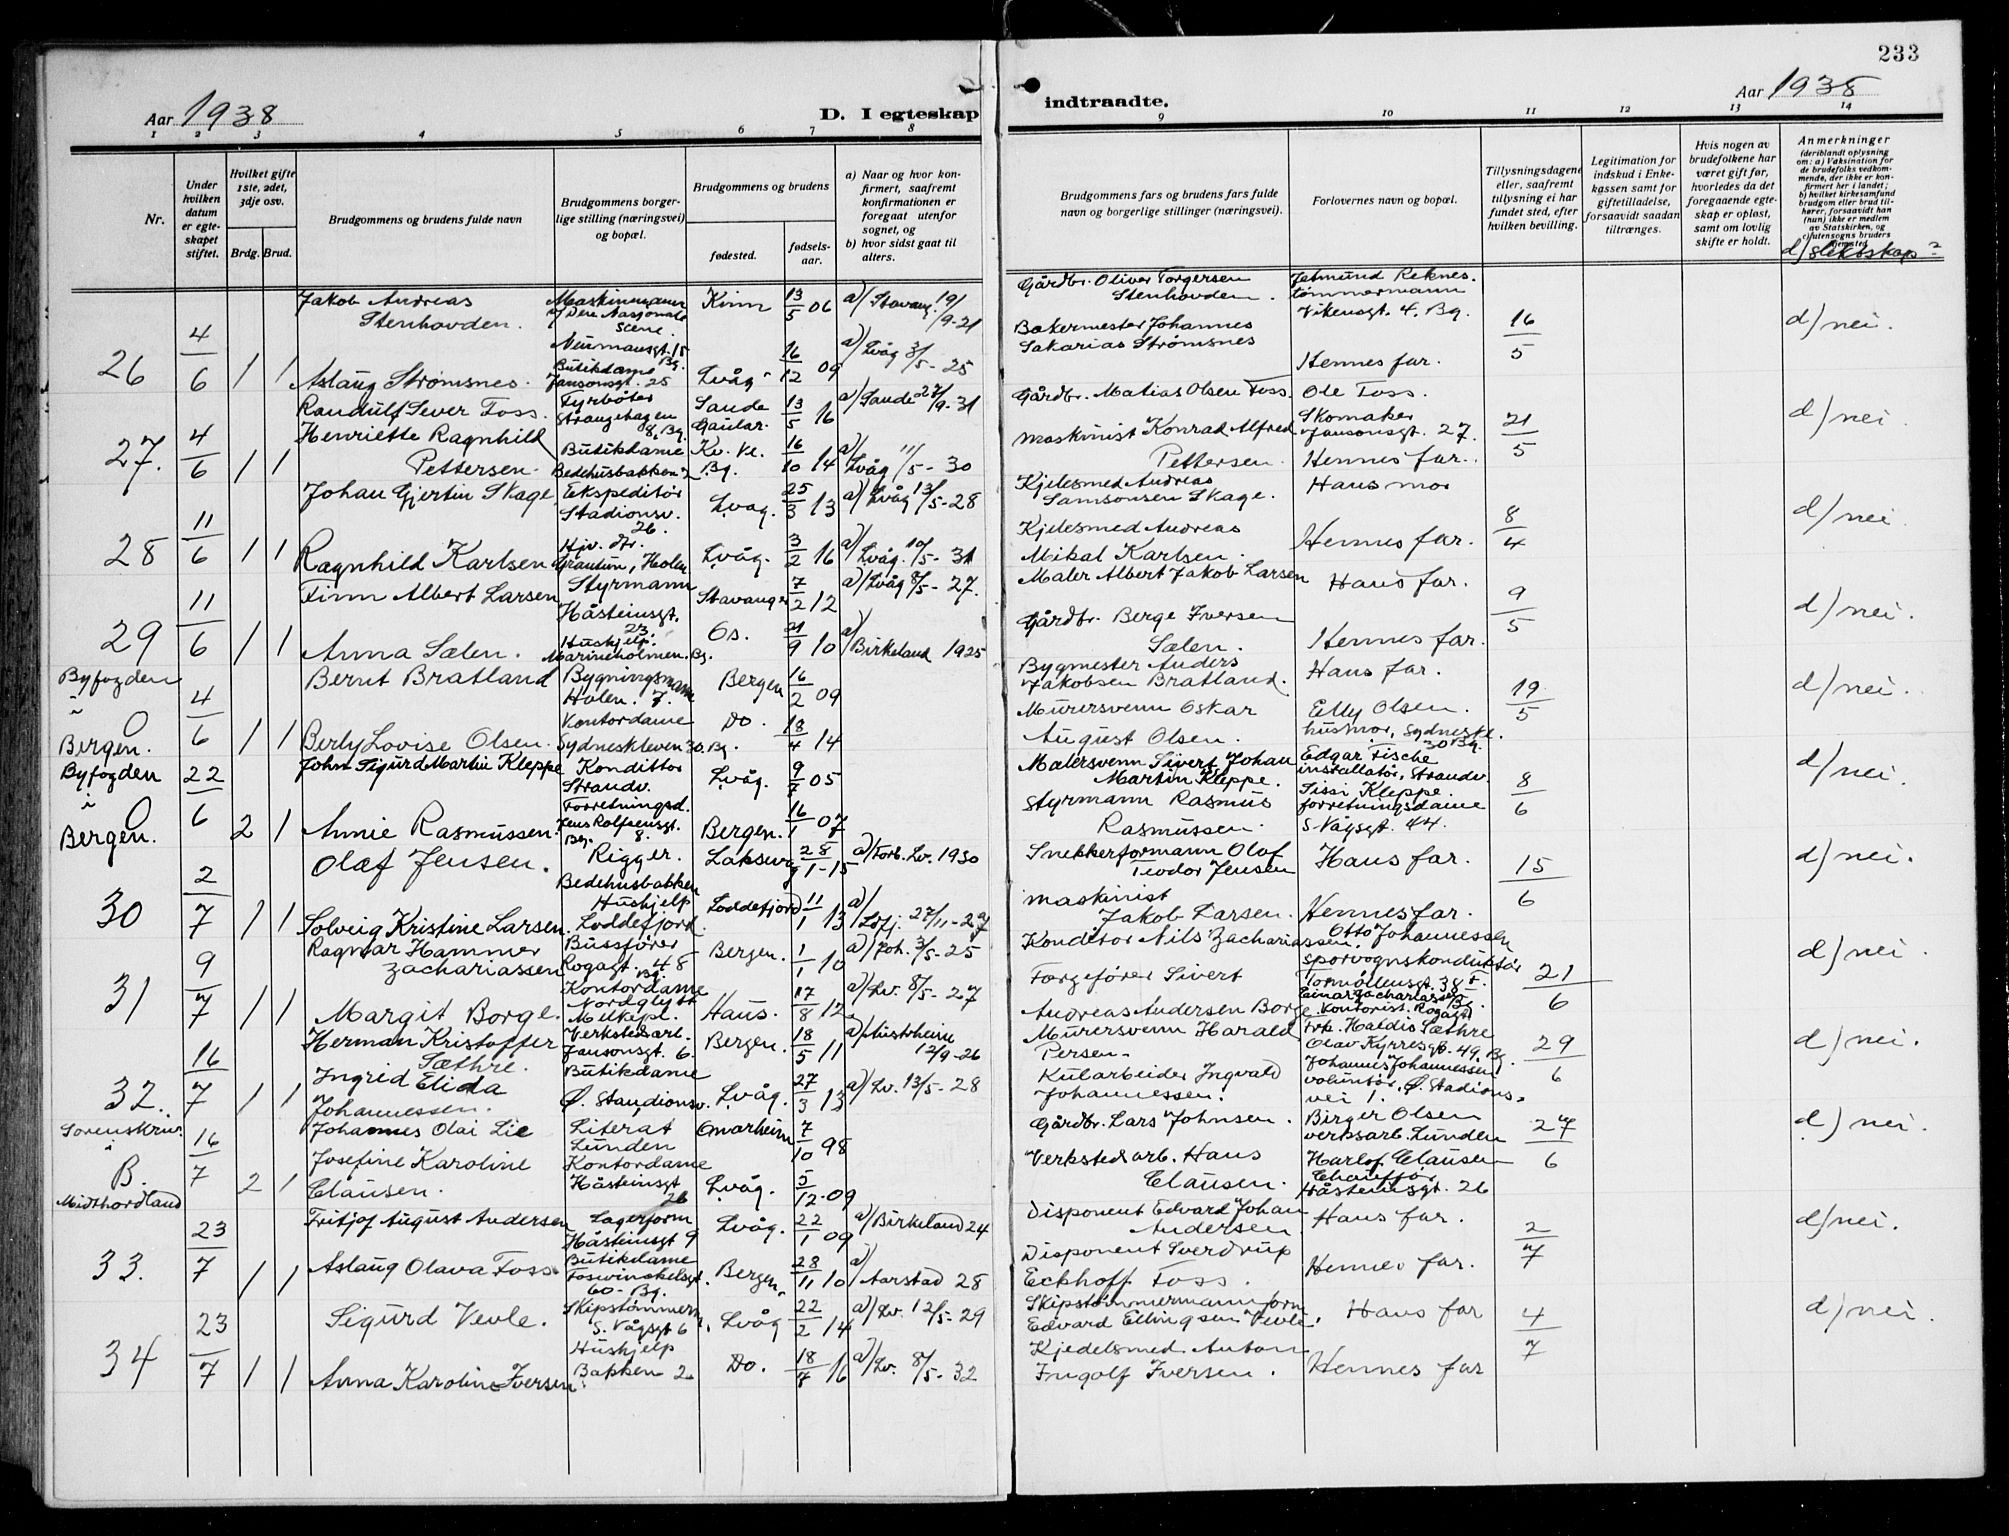 233
Aar 1938
D. I egteskap
indtraadte.
Aar 1938
1 2 3 4 5 6 7 8
9 10 11 12 13 14
Nr.
Under hvilken datum er egteskapet stiftet.
Hvilket gifte 1ste, 2det, 3dje osv.
Brdg. Brud.
Brudgommens og brudens fulde navn
Brudgommens borgerlige stilling (næringsvei) og bopæl.
Brudgommens og brudens
fødested.
fødselsaar.
a) Naar og hvor konfirmert, saafremt konfirmationen er foregaat utenfor sognet, og
b) hvor sidst gaat til alters.
Brudgommens fars og brudens fars fulde navn og borgerlige stillinger (næringsvei).
Forlovernes navn og bopæl.
Tillysningsdagene eller, saafremt tillysning ei har fundet sted, efter hvilken bevilling.
Legitimation for indskud i Enkekassen samt for giftetilladelse, forsaavidt saadan tiltrænges.
Hvis nogen av brudefolkene har været gift før, hvorledes da det foregaaende egteskap er opløst, samt om lovlig skifte er holdt.
Anmerkninger
(deriblandt oplysning om: a) Vaksination for de brudefolks vedkommende, der ikke er konfirmert her i landet; b) hvilket kirkesamfund brudgom eller brud tilhører, forsaavidt han (hun) ikke er medlem av Statskirken, og c) utensogns bruders hjemsted
d) slektskap?
26 4/6 1 1
Jakob Andreas Stenhovden. Maskinmann v/ Den Nasjonale Scene. Neumansgt. 15 Bg. Kinn 13/5 06 a) Stavang 19/9-21
Gårdbr. Oliver Torgersen Stenhovden. Jetmund Reknes. tømmermann Vikensgt. 4. Bg. 16/5 d) nei.
Aslaug Strømsnes. Butikdame Jansonsgt. 25 Lvåg 16/12 09 a) Lvåg 3/5-25
Bakermester Johannes Sakarias Strømsnes Hennes far.
27. 4/6 1 1
Randulf Sever Foss. Fyrbøter Strangehagen 8, Bg. Sande Gaular. 13/5 16 a) Sande 27/9-31
Gårdbr. Matias Olsen Foss. Ole Foss. Skomaker Jansonsgt. 27. 21/5 d) nei
Henriette Ragnhild Pettersen. Butikdame Bedehusbakken 2 Kv. Ve. Bg. 16/10 14 a) Lvåg 11/5-30
Maskinist Konrad Alfred Pettersen. Hennes far.
28 11/6 1 1
Johan Gjertin Skage Ekspeditør Stadionsv. 26. Lvåg. 25/3 13 a) Lvåg 13/5-28
Kjelesmed Andreas Samsonsen Skage. Hans mor 8/4 d) nei
Ragnhild Karlsen Hjv. Dtr. Grantun, Holen Lvåg. 3/2 16 a) Lvåg. 10/5-31
Kjelesmed Andreas Mikal Karlsen. Hennes far.
29 11/6 1 1
Finn Albert Larsen Styrmann Håsteinsgt. 23. Stavanger 7/2 12 a) Lvåg 8/5-27.
Maler Albert Jakob Larsen Hans far. 9/5 d) nei.
Anna Sælen. Hushjelp. Marineholmen. Bg. Os. 21/9 10 a) Birkeland 1925
Gårdbr. Berge Iversen Sælen. Hennes far.
Byfogden i Bergen. 0 4/6 1 1
Bernt Bratland Bygningsmann Holen. 7. Bergen 16/2 09
Bygmester Anders Jakobsen Bratland. Hans far. 19/5 d) nei.
Berly Lovise Olsen. Kontordame Sydneskleven 30. Bg. Do. 18/4 14
Murersvenn Oskar August Olsen. Elly Olsen. husmor, Sydneskl. 30 Bg.
Byfogden i Bergen. 0 22/6 2 1
John Sigurd Martin Kleppe Konditor Strandv. Lvåg. 9/7 05
Malersvenn Sivert Johan Martin Kleppe. Edgar Fische installatør, Strandv. 8/6 d) nei.
Annie Rasmussen. Forretningsd. Jens Rolfsensgt. 8. Bg. Bergen. 16/1 07
Styrmann Rasmus Rasmussen. Sissi Kleppe. forretningsdame S. Vågsgt. 44.
30 2/7 1 1
Olaf Jensen. Rigger. Bedehusbakken Laksevåg 28/1-15 a) Forb. Lv. 1930
Snekkerformann Olaf Teodor Jensen Hans far. 15/6 d) nei.
Solveig Kristine Larsen. Hushjelp Loddefjord. Loddefjord 11/1 13 a) Ldfj. 27/11-27
maskinist Jakob Larsen. Hennes far.
31 9/7 1 1
Ragnar Hammer Zachariassen Bussfører Rogagt. 48 Bg. Bergen. 1/1 10 a) Joh. 3/5-25
Konditor Nils Zachariassen. Otto Johannessen sporvognskonduktør Tormøllensgt. 38 F. 21/6 d) nei
Margit Borge. Kontordame Nordglytt Melkepl. Haus. 17/8 12 a) Lv. 8/5-27
Fargefører Sivert Andreas Andersen Borge. Einar Zachariassen Kontorist. Rogagt. Bg.
32. 16/7 1 1
Herman Kristoffer Sæthre. Verkstedsarb. Jansonsgt. 6. Bergen. 18/5 11 a) Austrheim 12/9-26
Murersvenn Harald Persen. Frk. Haldis Sæthre Olav Kyrresgt. 49. Bg. 29/6 d) nei.
Ingrid Elida Johannessen. Butikdame Ø. Standionsv. Lvåg. 27/3 13 a) Lv. 13/5-28
Kularbeider Ingvald Johannessen. Johannes Johannessen voluntør, Ø. Stadionsvei 1.
Sorenskriv. i B. Midthordland 16/7 2 1
Johannes Olai Lie Literat Lunden Omarheim 7/10 98
Gårdbr. Lars Johnsen. Birger Olsen verksarb. Lunden 27/6 d) nei.
Josefine Karoline Clausen. Kontordame Håsteinsgt 26 Lvåg. 5/12-09
Verkstedsarb. Hans Clausen. Harlof Clausen Chauffør Håsteinsgt. 26
33. 23/7 1 1
Fritjof August Andersen Lagerform Håsteinsgt 9 Lvåg. 22/1 09 a) Birkeland 24
Disponent Edvard Johan Andersen Hans far. 2/7 d) nei.
Aslaug Olava Foss. Butikdame Foswinckelsgt. 60 - Bg. Bergen. 28/11 10 a) Aarstad 28
Disponent Sverdrup Eckhoff Foss. Hennes far.
34 23/7 1 1
Sigurd Vevle. Skipstømmerm. S. Vågsgt 6 Lvåg 22/2 14 a) Lv. 12/5-29
Skipstømmermannform Edvard Ellingsen Vevle. Hans far 4/7 d) nei.
Anna Karoline Iversen Hushjelp Bakken 2. Do. 18/7 16 a) Lv. 8/5-32
Kjedelsmed. Anton Ingolf Iversen. Hennes far